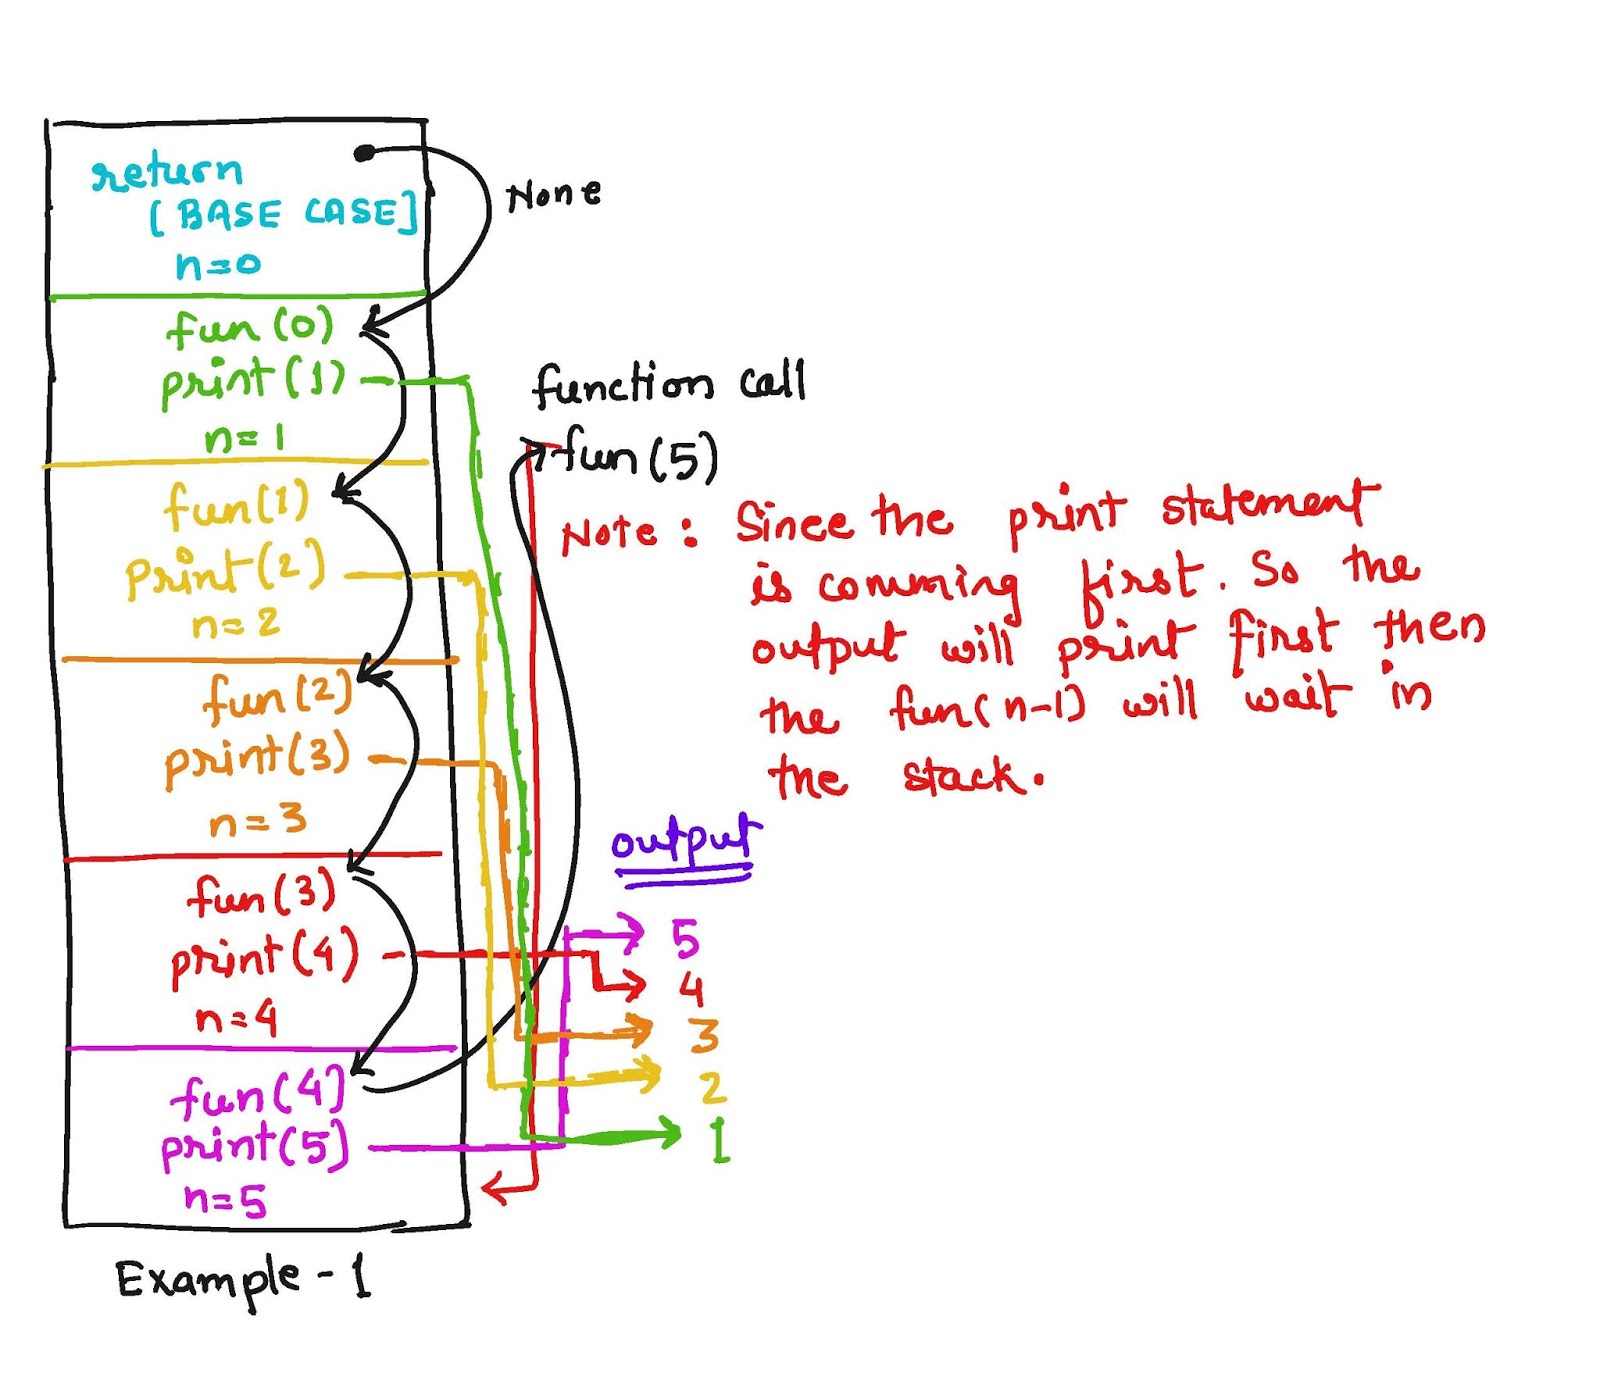 return
[BASE CASE]
n=0
None
fun(0)
print(1)
n=1
fun(1)
print(2)
n=2
fun(2)
print(3)
n=3
fun(3)
print(4)
n=4
fun(4]
print(5]
n=5
Example-1
function call
fun(5)
Note: Since the print statement
is comming first. So the
output will print first then
the fun(n-1) will wait in
the stack.
output
5
4
3
2
1